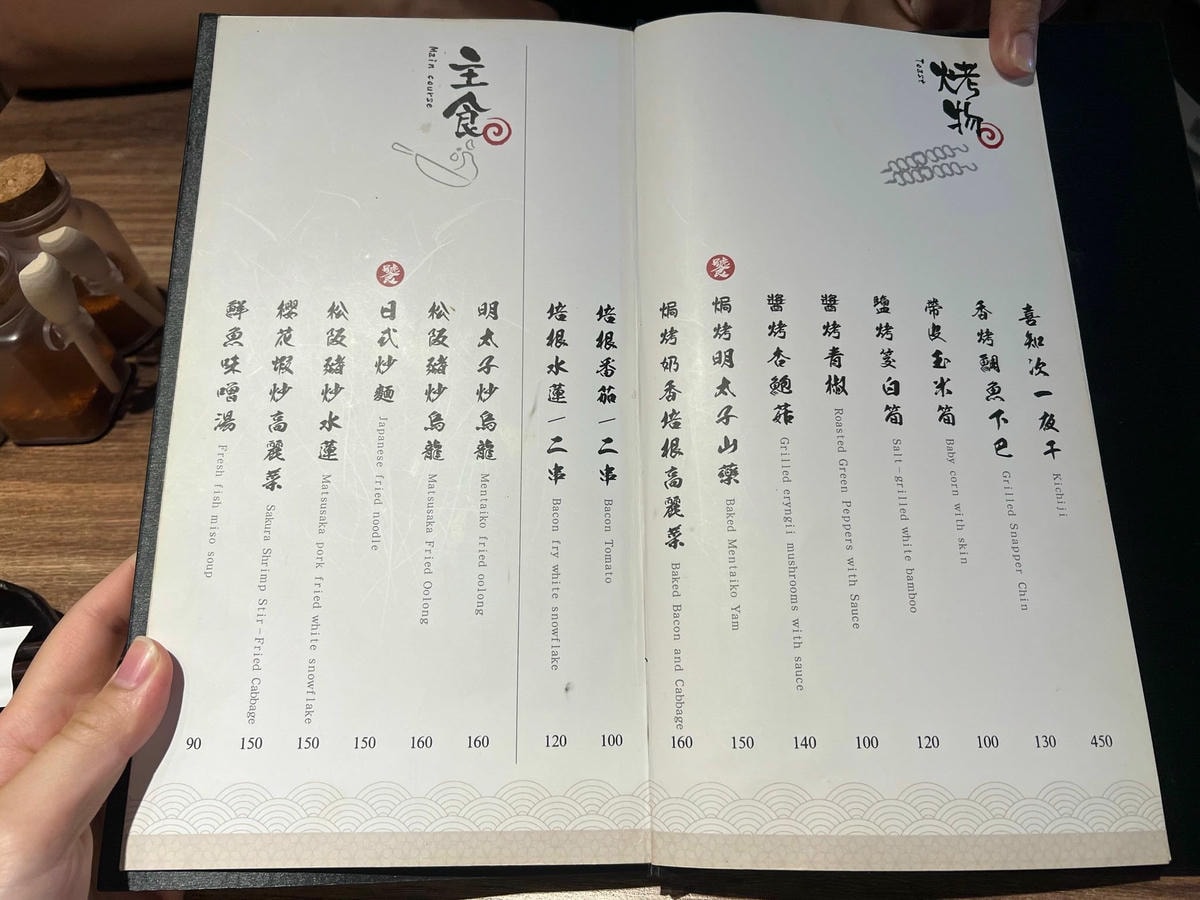 烤物
Toast
喜知次一夜干 Kichiji 450
香烤鯛魚下巴 Grilled Snapper Chin 130
帶皮玉米筍 Baby corn with skin 100
鹽烤筊白筍 Salt-grilled white bamboo 120
醬烤青椒 Roasted Green Peppers with Sauce 100
醬烤杏鮑菇 Grilled eryngii mushrooms with sauce 140
焗烤明太子山藥 Baked Mentaiko Yam 150
焗烤奶香培根高麗菜 Baked Bacon and Cabbage 160
培根番茄一二串 Bacon Tomato 100
培根水蓮一二串 Bacon fry white snowflake 120
主食
Main course
明太子炒烏龍 Mentaiko fried oolong 160
松阪豬炒烏龍 Matsusaka Fried Oolong 160
日式炒麵 Japanese fried noodle 150
松阪豬炒水蓮 Matsusaka pork fried white snowflake 150
櫻花蝦炒高麗菜 Sakura Shrimp Stir-Fried Cabbage 150
鮮魚味噌湯 Fresh fish miso soup 90